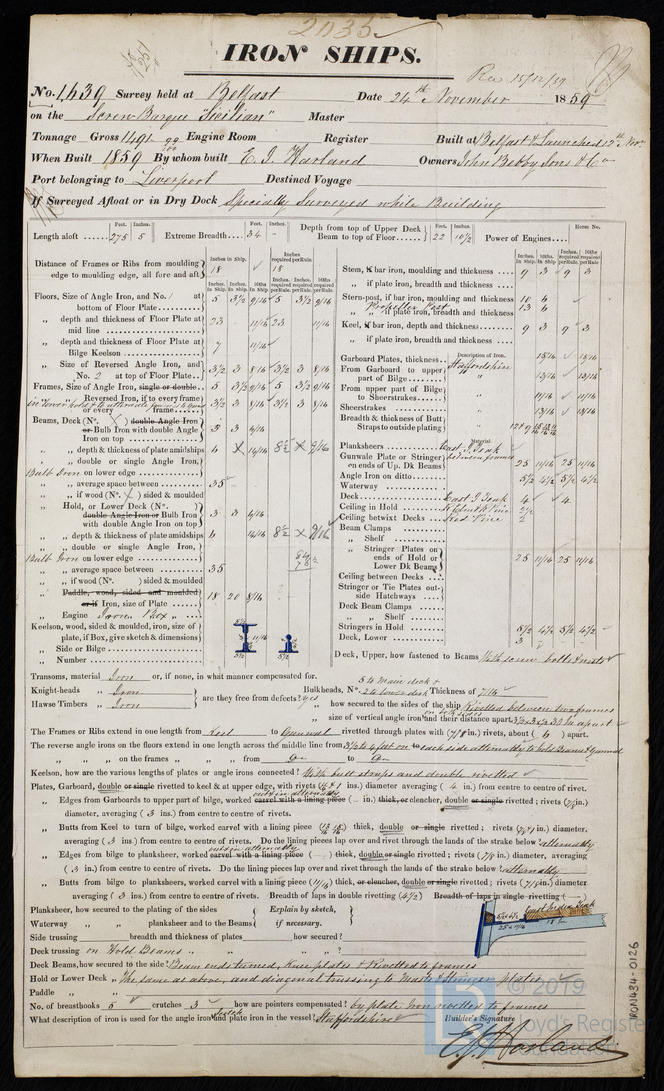 2035
IRON SHIPS.
Rec 15/12/59
No. 1,639 Survey held at Belfast Date 24th November 1859
on the Screw Barque "Sicilian" Master
Tonnage Gross 1491 Engine Room Register Built at Belfast & Launched 12th Nov
When Built 1859 By whom built E. J. Harland Owners John Bibby Sons & Co
Port belonging to Liverpool Destined Voyage
If Surveyed Afloat or in Dry Dock Specially Surveyed while Building
Length aloft ...... 275 5 Extreme Breadth... 34 - Depth from top of Upper Deck Beam to top of Floor...... 22 10½ Power of Engines....
Feet. Inches. Feet. Inches. Feet. Inches. Horse No.
Distance of Frames or Ribs from moulding edge to moulding edge, all fore and aft 18 18
Inches in Ship. Inches required per Rule.
Floors, Size of Angle Iron, and No. 1 at bottom of Floor Plate 5 3½ 9/16 5 3½ 9/16
„ depth and thickness of Floor Plate at mid line 23 11/16 23 11/16
„ depth and thickness of Floor Plate at Bilge Keelson 7 11/16
„ Size of Reversed Angle Iron, and No. 2 at top of Floor Plate 3½ 3 8/16 3½ 3 8/16
Frames, Size of Angle Iron, single or double 5 3½ 9/16 5 3½ 9/16
„ Reversed Iron, if to every frame or every frame 3½ 3 8/16 3½ 3 8/16
Beams, Deck (No. ) double Angle Iron or Bulb Iron with double Angle Iron on top 3 3 6/16
„ depth & thickness of plate amidships
„ double or single Angle Iron, on lower edge
Bulb Iron
„ average space between 35
„ if wood (No. ) sided & moulded
„ Hold, or Lower Deck (No. double Angle Iron or Bulb Iron with double Angle Iron on top) 3 3 6/16
„ depth & thickness of plate amidships
„ double or single Angle Iron, on lower edge
Bulb Iron
„ average space between 35
„ if wood (No. ) sided & moulded
„ Paddle, wood, sided and moulded or if Iron, size of Plate 18 20 8/16
„ Engine Iron Box
Keelson, wood, sided & moulded, iron, size of plate, if Box, give sketch & dimensions
„ Side or Bilge
„ Number
Stem, if bar iron, moulding and thickness 9 3 9 3
„ if plate iron, breadth and thickness
Stern-post, if bar iron, moulding and thickness 10 6
„ Propeller Post 13 6
„ if plate iron, breadth and thickness
Keel, if bar iron, depth and thickness 9 3 9 3
„ if plate iron, breadth and thickness
Description of Iron.
Garboard Plates, thickness Staffordshire 15/16 15/16
From Garboard to upper part of Bilge „ 13/16 13/16
From upper part of Bilge to Sheerstrakes „ 11/16 11/16
Sheerstrakes „ 13/16 13/16
Breadth & thickness of Butt Straps to outside plating
Material
Planksheers East I. Teak between frames
Gunwale Plate or Stringer on ends of Up. Dk Beams 25 11/16 25 11/16
Angle Iron on ditto 5½ 4½ 5½ 4½
Waterway
Deck East I. Teak 4 4
Ceiling in Hold
Ceiling betwixt Decks Red Pine 2
Beam Clamps
„ Shelf
„ Stringer Plates on ends of Hold or Lower Dk Beams 25 11/16 25 11/16
Ceiling between Decks
Stringer or Tie Plates outside Hatchways
Deck Beam Clamps
„ „ Shelf
Stringers in Hold 5½ 4½ 5½ 4½
Deck, Lower 3
Deck, Upper, how fastened to Beams With screw bolts & nuts
Transoms, material Iron or, if none, in what manner compensated for.
Knight-heads „ Iron
Hawse Timbers „ Iron are they free from defects? yes
Bulkheads, No. 5 to Main deck & 2 to lower deck Thickness of 7/16
„ how secured to the sides of the ship Rivetted between two frames on both sides
„ size of vertical angle iron and their distance apart
The Frames or Ribs extend in one length from keel to Gunwale rivetted through plates with (7/8 in.) rivets, about ( 6 ) apart.
The reverse angle irons on the floors extend in one length across the middle line from 3½ to 4 feet on to each side alternately to hold Beams & gunwale
„ „ „ on the frames „ „ from „ to
Keelson, how are the various lengths of plates or angle irons connected? With butt straps and double rivetted
Plates, Garboard, double or single rivetted to keel & at upper edge, with rivets ( ins.) diameter averaging ( 4 in.) from centre to centre of rivet.
„ Edges from Garboards to upper part of bilge, worked carvel with a lining piece ( in.) thick, or clencher, double or single rivetted; rivets (7/8 in.) diameter, averaging ( 3 ins.) from centre to centre of rivets.
„ Butts from Keel to turn of bilge, worked carvel with a lining piece ( ) thick, double or single rivetted; rivets ( in.) diameter. averaging ( 3 in.) from centre to centre of rivets. Do the lining pieces lap over and rivet through the lands of the strake below? alternately
„ Edges from bilge to planksheer, worked carvel with a lining piece ( ) thick, double or single rivetted; rivets (7/8 in.) diameter, averaging ( 3 in.) from centre to centre of rivets. Do the lining pieces lap over and rivet through the lands of the strake below? alternately
„ Butts from bilge to planksheers, worked carvel with a lining piece (11/16) thick, or clencher, double or single rivetted; rivets (7/8 in.) diameter averaging ( 3 ins.) from centre to centre of rivets. Breadth of laps in double rivetting (4½) Breadth of laps in single rivetting ( )
Planksheer, how secured to the plating of the sides Explain by sketch,
Waterway „ „ planksheer and to the Beams if necessary.
Side trussing breadth and thickness of plates how secured?
Deck trussing on Hold Beams „ „ „ ?
Deck Beams, how secured to the side? Beam ends turned, knee plates & Rivetted to frames
Hold or Lower Deck „ The same as above, and diagonal trussing to Masts & Stringer Plates
Paddle „ „
No. of breasthooks 5 crutches 3 how are pointers compensated? by plate iron rivetted to frames
What description of iron is used for the angle iron and plate iron in the vessel? Staffordshire
Builder's Signature
E J Harland
IRON434-0126
© 2019
Lloyd's Register
Foundation